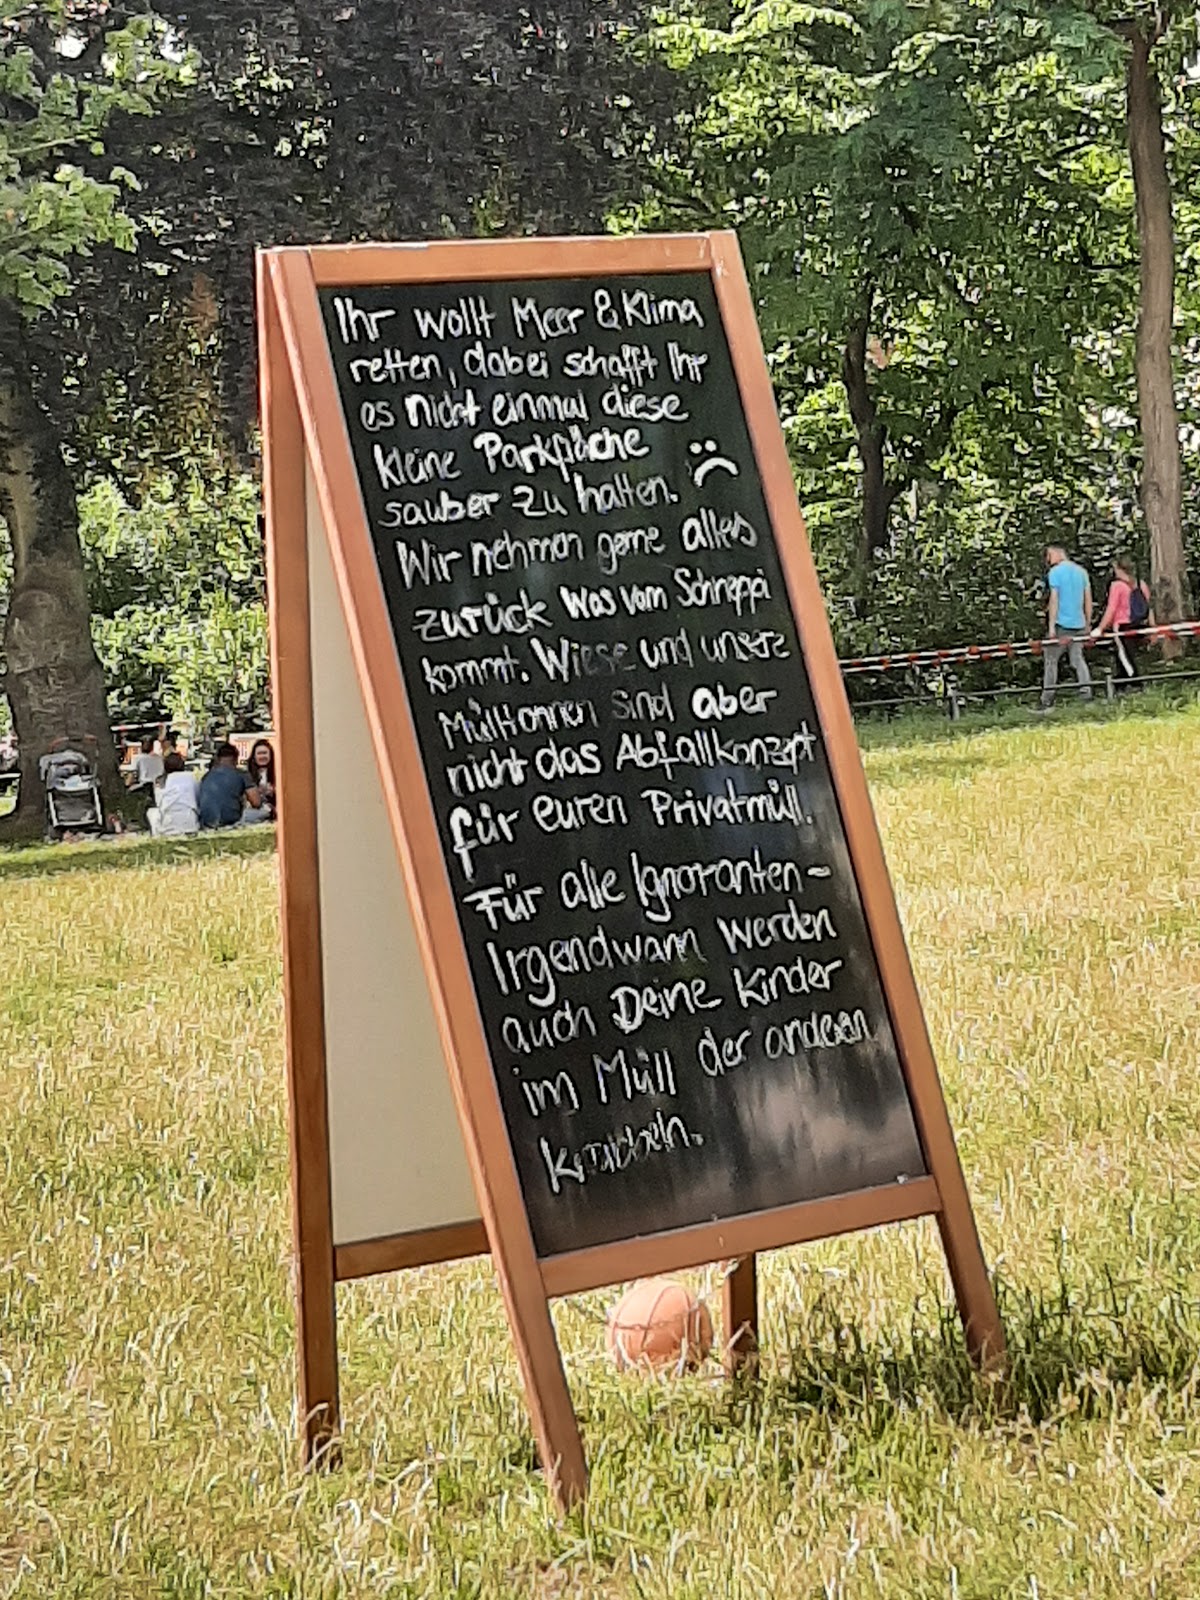 Ihr wollt Meer & Klima
retten, dabei schafft Ihr
es nicht einmal diese
kleine Parkfläche
sauber zu halten.
Wir nehmen gerne alles
zurück was vom Schreppi
kommt. Wiese und unsere
Mülltonnen sind aber
nicht das Abfallkonzept
für euren Privatmüll.
Für alle Ignoranten -
Irgendwann werden
auch Deine Kinder
im Müll der anderen
krabbeln.